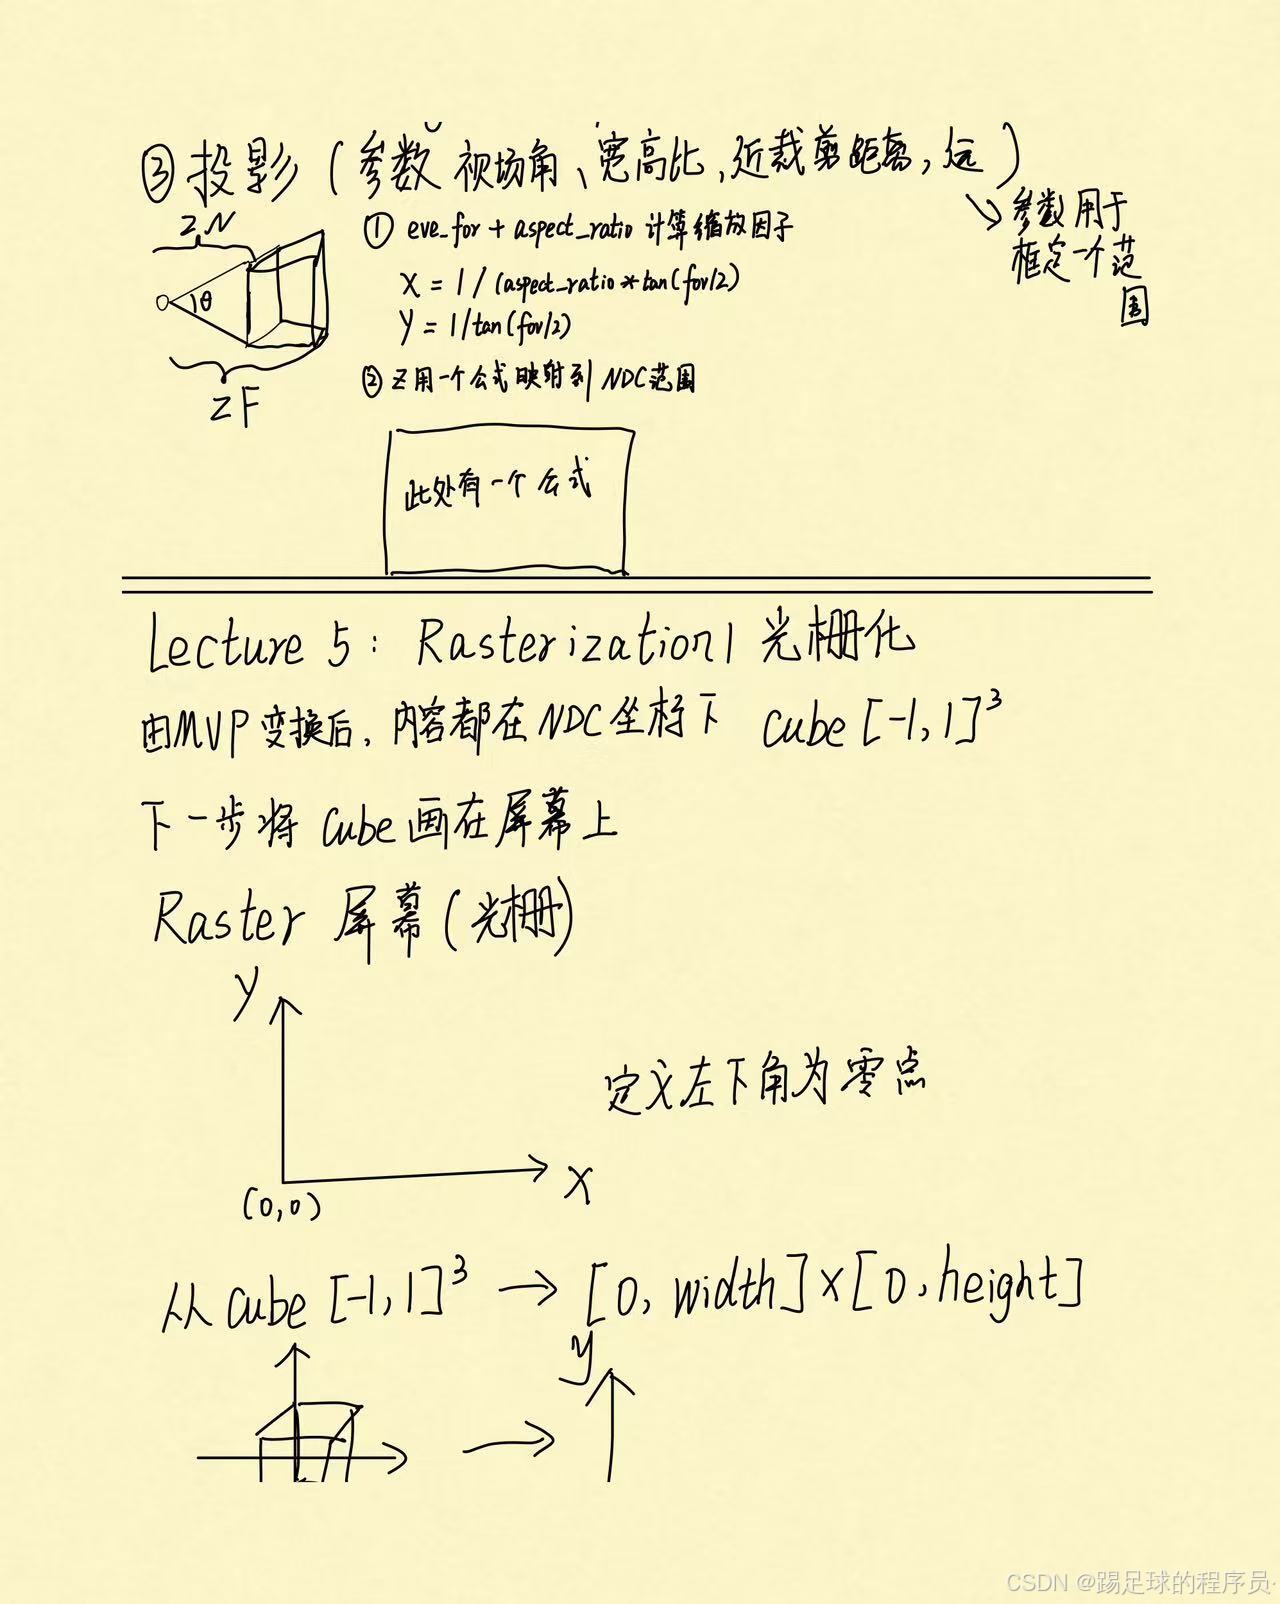 ③投影（参数 视场角、宽高比,近裁剪距离,远）
↘参数用于
框定一个范
围
ZN
θ
ZF
① eve_for + aspect_ratio 计算缩放因子
X = 1 / (aspect_ratio*tan(fov/2)
Y = 1/tan(fov/2)
② Z用一个公式映射到 NDC范围
此处有一个公式
Lecture 5: Rasterization1 光栅化
由MVP变换后, 内容都在NDC坐标下 cube [-1,1]³
下一步将 cube 画在屏幕上
Raster 屏幕(光栅)
Y
定义左下角为零点
X
(0,0)
从 cube [-1,1]³ → [0, width]×[0,height]
y
CSDN @踢足球的程序员·